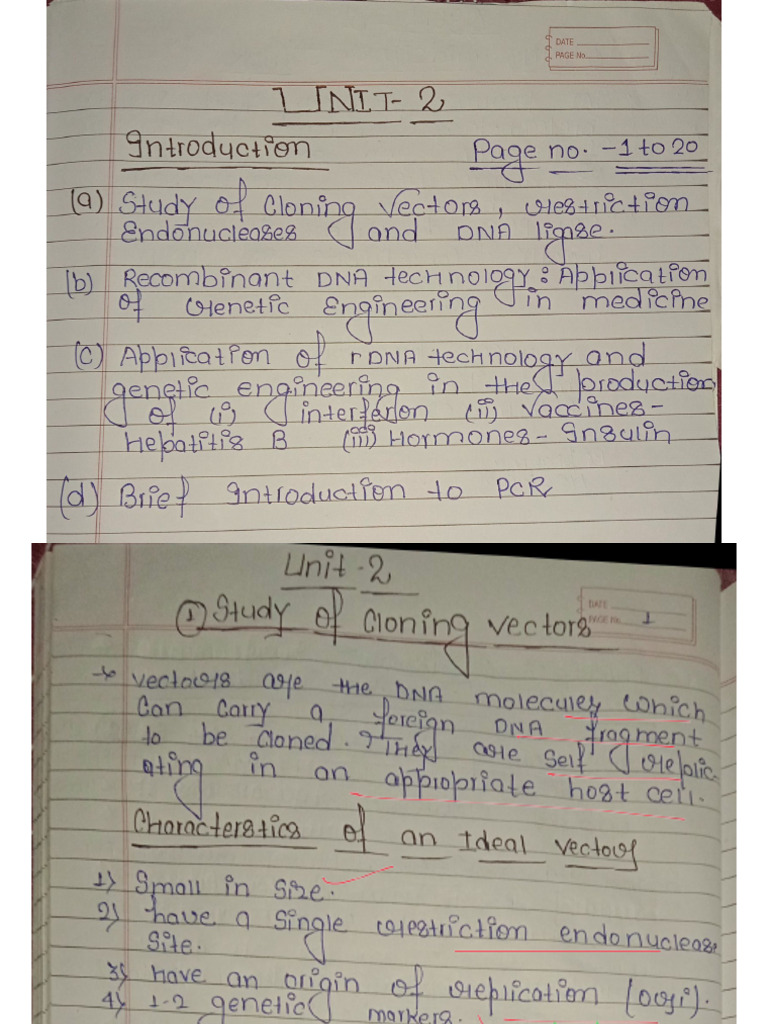 DATE
PAGE No.
UNIT-2
Introduction
Page no. -1 to 20
(a) Study of Cloning Vectors, restriction
Endonucleases and DNA ligase.
(b) Recombinant DNA technology: Application
of Genetic Engineering in medicine
(c) Application of rDNA technology and
genetic engineering in the production
of (i) interferon (ii) Vaccines-
Hepatitis B (iii) Hormones- Insulin
(d) Brief Introduction to PCR
Unit-2
DATE
PAGE No. 1
① Study of Cloning Vectors
Vectors are the DNA molecules which
Can carry a foreign DNA fragment
to be cloned. They are self replic
ating in an appropriate host cell.
Characterstics of an Ideal Vector
1) Small in Size.
2) have a Single restriction endonuclease
Site.
3) have an origin of replication (ori).
4) 1-2 genetic markers.